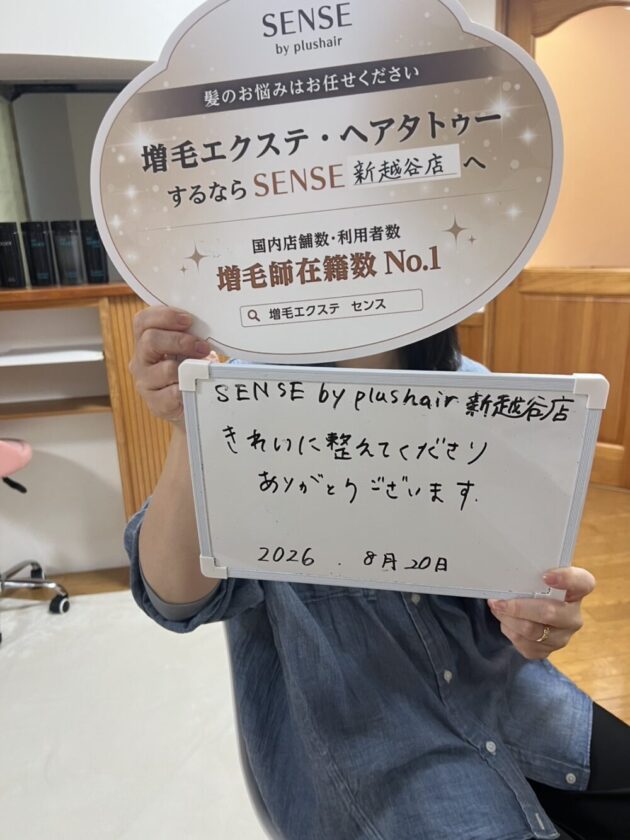 SENSE
by plushair
髪のお悩みはお任せください
増毛エクステ・ヘアタトゥー
するなら SENSE 新越谷店 へ
国内店舗数・利用者数
増毛師在籍数 No.1
増毛エクステ センス
SENSE by plushair 新越谷店
きれいに整えてくださり
ありがとうございます.
2026 . 8月20日